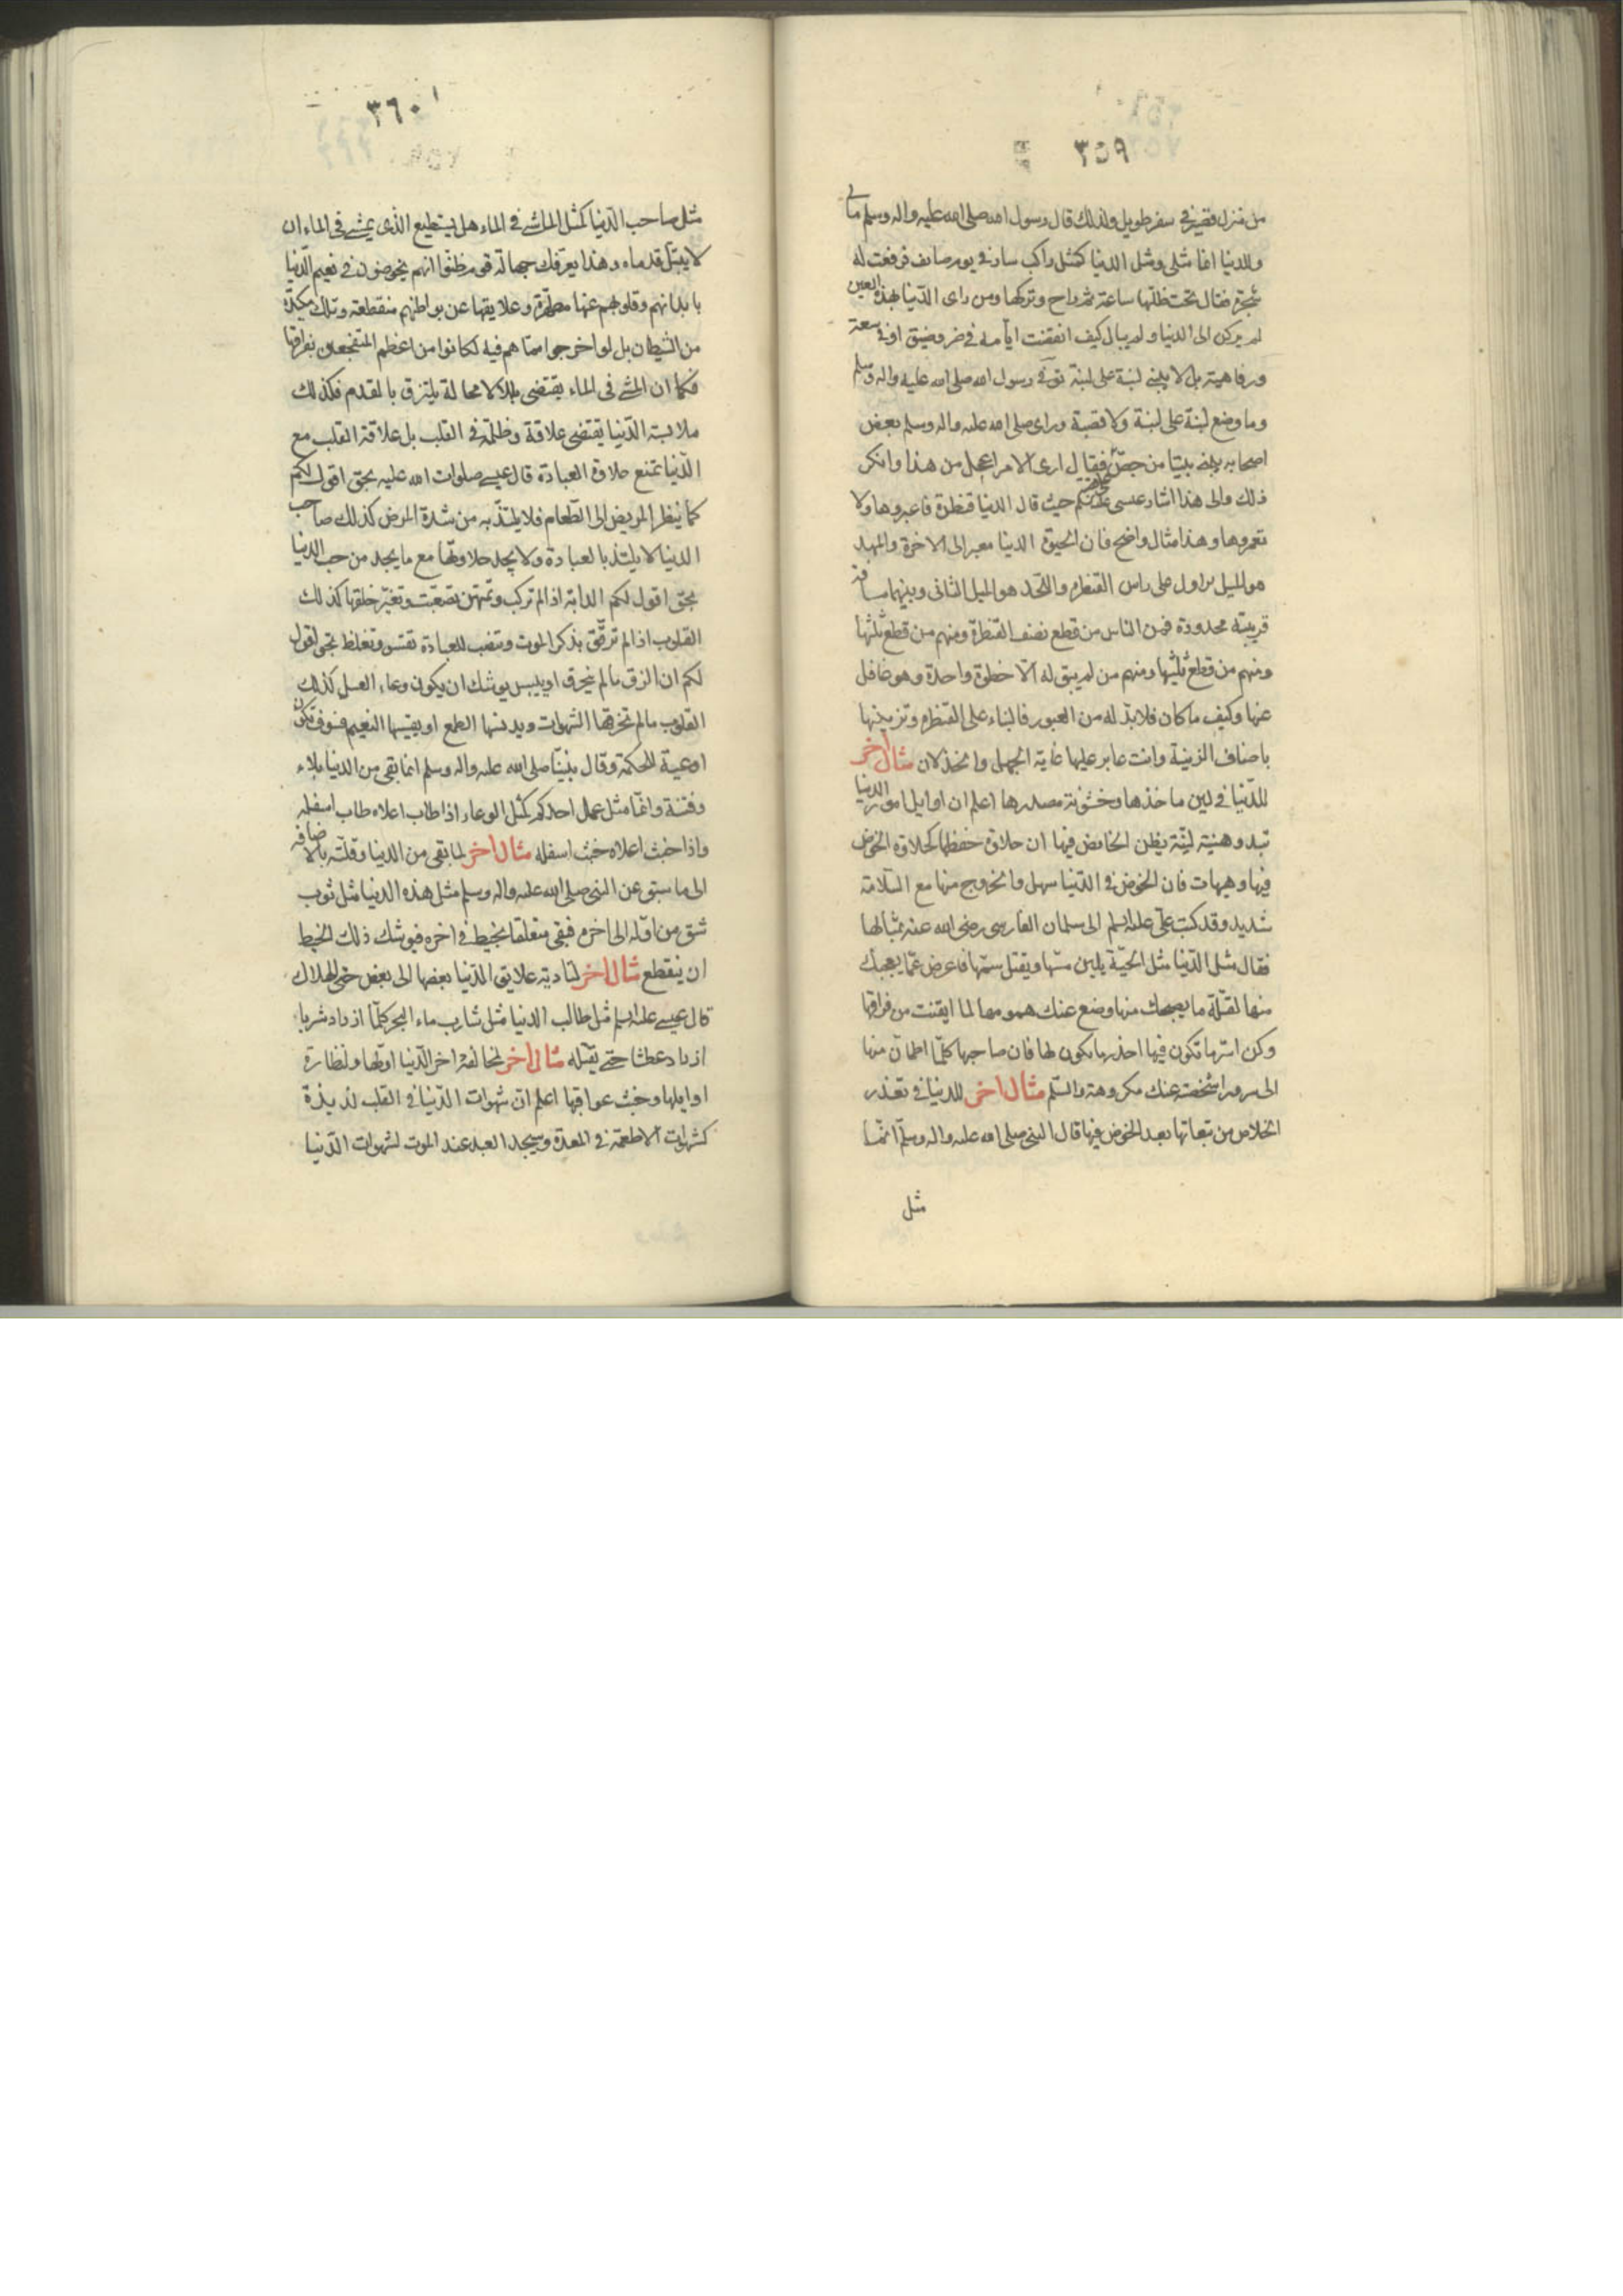 ٣٥٩
من منزل قصير فى سفر طويل ولذلك قال رسول الله صلى الله عليه واله وسلم مالى
وللدنيا انما مثلى ومثل الدنيا كمثل راكب سار فى يوم صايف فرفعت له
شجرة فقال تحت ظلها ساعة ثم راح وتركها ومن راى الدّنيا بهذه العين
لم يركن الى الدنيا ولم يبال كيف انقضت ايّامه فى ضر وضيق او فى سعة
ورفاهية بل لا يبنى لبنة على لبنة توفى رسول الله صلى الله عليه واله وسلم
وما وضع لبنة على لبنة ولا قصبة وراى صلى الله عليه واله وسلم بعض
اصحابه يبنى بيتا من جصّ فقال ارى الامر اعجل من هذا وانكر
ذلك والى هذا اشار عيسى حيث قال الدنيا قنطرة فاعبروها ولا
تعمروها وهذا مثال واضح فان الحيوة الدنيا معبر الى الاخرة والمهد
هو الميل الاول على راس القنطرة واللّحد هو الميل الثانى وبينهما مسافة
قريبة محدودة فمن الناس من قطع نصف القنطرة ومنهم من قطع ثلثها
ومنهم من قطع ثلثيها ومنهم من لم يبق له الّا خطوة واحدة وهو غافل
عنها وكيف ما كان فلا بدّ له من العبور فالبناء على القنطرة وتزيينها
باصناف الزينة وانت عابر عليها غاية الجهل والخذلان مثال اخر
للدّنيا فى لين ماخذها وخشونة مصدرها اعلم ان اوايل امور الدنيا
تبدو هنيئة ليّنة يظن الخايض فيها ان حلاوة خفظها كحلاوة الخوض
فيها وهيهات فان الخوض فى الدّنيا سهل والخروج منها مع السّلامة
شديد وقد كتب علىّ عليه السلم الى سلمان الفارسى رضى الله عنه بمثالها
فقال مثل الدّنيا مثل الحيّة يلين مسّها ويقتل سمّها فاعرض عمّا يعجبك
منها لقلّة ما يصحبك منها وضع عنك همومها لما ايقنت من فراقها
وكن اسرّ ما تكون فيها احذر ما تكون لها فان صاحبها كلّما اطمأن منها
الى سرور اشخصته عنك مكروهة والسّلم مثال اخر للدنيا فى تعذر
الخلاص من تبعاتها بعد الخوض فيها قال النبى صلى الله عليه واله وسلم انّما
مثل
٣٦٠
مثل صاحب الدّنيا كمثل الماشى فى الماء هل يستطيع الّذى يمشى فى الماء ان
لا يبتلّ قدماه وهذا يعرّفك جهالة قوم ظنّوا انهم يخوضون فى نعيم الدّنيا
بابدانهم وقلوبهم عنها مطهّرة وعلايقها عن بواطنهم منقطعة وتلك مكيدة
من الشيطان بل لو اخرجوا ممّا هم فيه لكانوا من اعظم المتفجعين بفراقها
فكما ان المشى فى الماء يقتضى بللا لا محالة يلتزق بالقدم فكذلك
ملابسة الدّنيا يقتضى علاقة وظلمة فى القلب بل علاقة القلب مع
الدّنيا تمنع حلاوة العبادة قال عيسى صلوات الله عليه بحق اقول لكم
كما ينظر المريض الى الطّعام فلا يلتذّ به من شدة المرض كذلك صاحب
الدنيا لا يلتذ بالعبادة ولا يجد حلاوتها مع ما يجد من حب الدنيا
بحق اقول لكم الدابة اذا لم تركب وتمتهن تصعّبت وتغيّر خلقها كذلك
القلوب اذا لم ترقّق بذكر الموت وتنصب للعبادة تقسو وتغلظ بحق اقول
لكم ان الزق ما لم ينخرق او ييبس يوشك ان يكون وعاء العسل كذلك
القلوب ما لم تخرقها الشهوات ويدنسها الطمع او يقسيها النعيم فسوف تكون
اوعية للحكمة وقال نبيّنا صلى الله عليه واله وسلم انما بقى من الدنيا بلاء
وفتنة وانّما مثل عمل احدكم كمثل الوعاء اذا طاب اعلاه طاب اسفله
واذا خبث اعلاه خبث اسفله مثال اخر لما بقى من الدنيا وقلّته بالاضافة
الى ما سبق عن النبى صلى الله عليه واله وسلم مثل هذه الدنيا مثل ثوب
شق من اوّله الى اخره فبقى متعلقا بخيط فى اخره فيوشك ذلك الخيط
ان ينقطع مثال اخر لتادية علايق الدّنيا بعضها الى بعض حتى الهلاك
قال عيسى عليه السلم مثل طالب الدنيا مثل شارب ماء البحر كلّما ازداد شربا
ازداد عطشا حتى يقتله مثال اخر لمخالفة اخر الدّنيا اوّلها ولنظارة
اوايلها وخبث عواقبها اعلم انّ شهوات الدّنيا فى القلب لذيذة
كشهوات الاطعمة فى المعدة وسيجد العبد عند الموت لشهوات الدّنيا